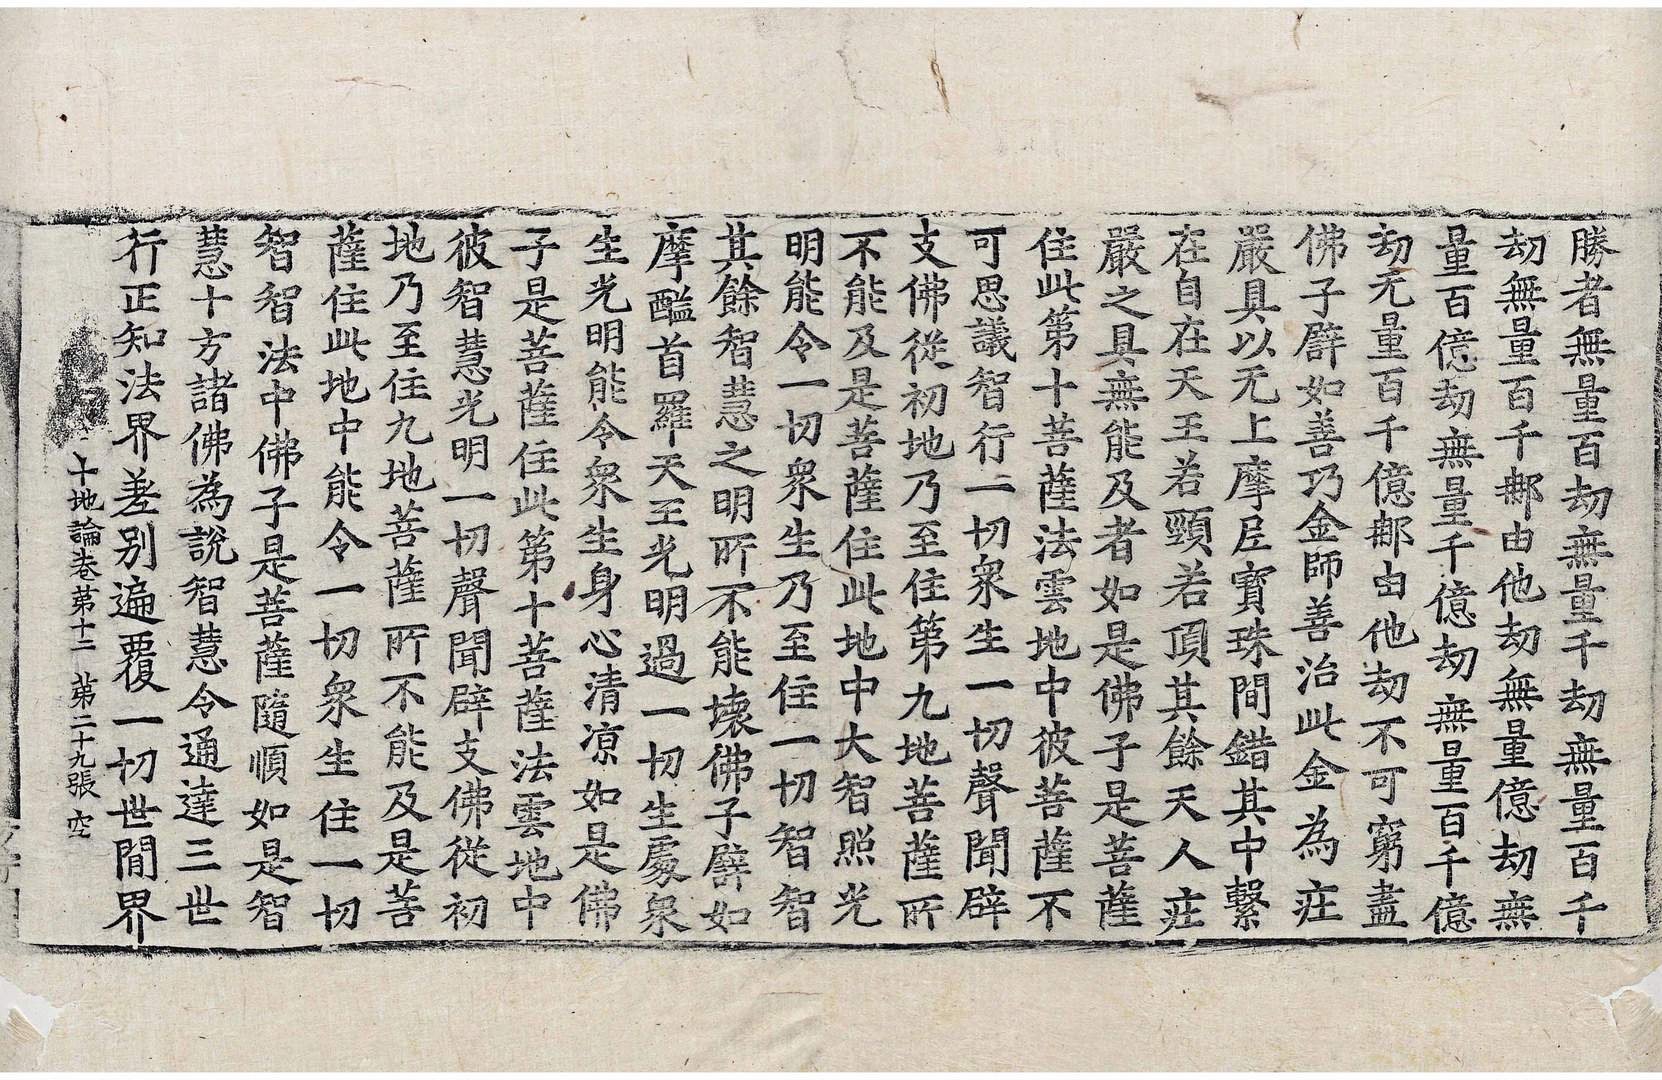 勝者無量百劫無量千劫無量百千
劫無量百千那由他劫無量億劫無
量百億劫無量千億劫無量百千億
劫无量百千億那由他劫不可窮盡
佛子譬如善巧金師善治此金為庄
嚴具以无上摩尼寶珠間錯其中繫
在自在天王若頸若頂其餘天人庄
嚴之具無能及者如是佛子是菩薩
住此第十菩薩法雲地中彼菩薩不
可思議智行一切衆生一切聲聞辟
支佛從初地乃至住第九地菩薩所
不能及是菩薩住此地中大智照光
明能令一切衆生乃至住一切智智
其餘智慧之明所不能壞佛子譬如
摩醯首羅天王光明過一切生處衆
生光明能令衆生身心清凉如是佛
子是菩薩住此第十菩薩法雲地中
彼智慧光明一切聲聞辟支佛從初
地乃至住九地菩薩所不能及是菩
薩住此地中能令一切衆生住一切
智智法中佛子是菩薩隨順如是智
慧十方諸佛為說智慧令通達三世
行正知法界差別遍覆一切世間界
十地論卷第十二　第二十九張　空